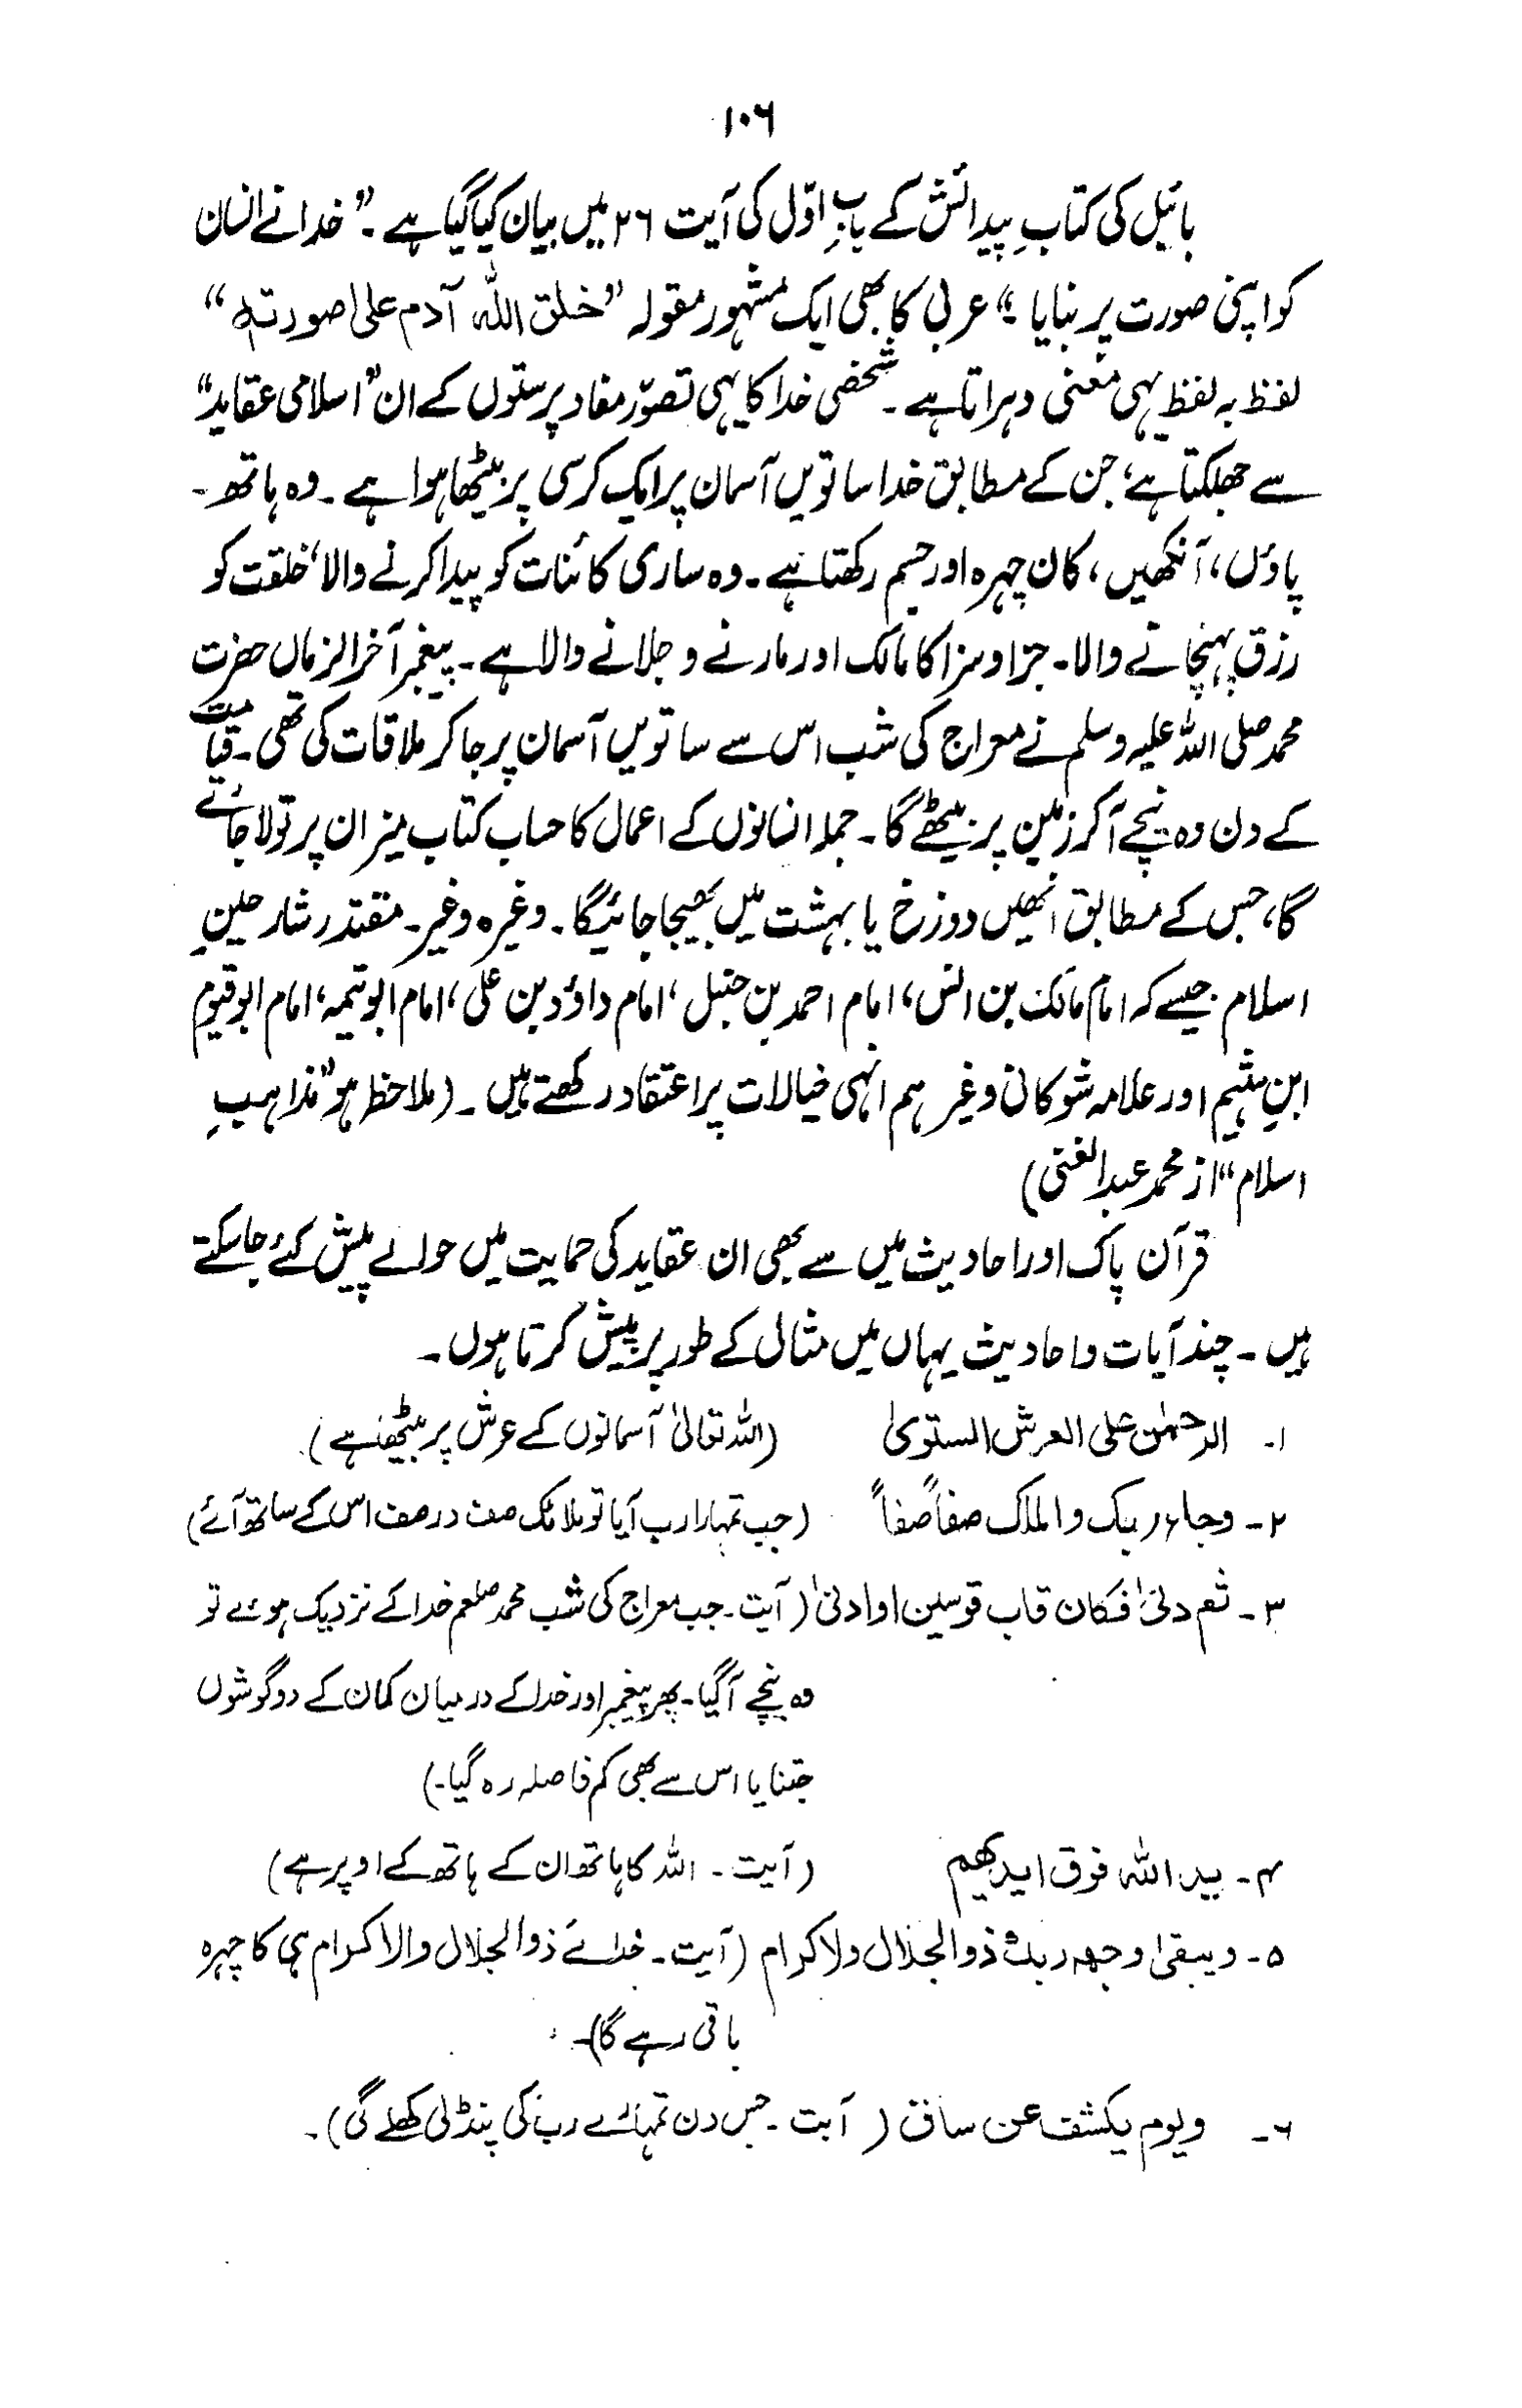 ۱۰۶
بائیل کی کتابِ پیدائش کے بابِ اوّل کی آیت ۲۶ میں بیان کیا گیا ہے۔ ”خدا نے انسان
کو اپنی صورت پر بنایا۔“ عربی کا بھی ایک مشہور مقولہ ”خلق اللہ آدم علیٰ صورتہٖ“
لفظ بہ لفظ یہی معنی دہراتا ہے۔ شخصی خدا کا یہی تصوّر مفاد پرستوں کے ان ”اسلامی عقاید“
سے جھلکتا ہے، جن کے مطابق خدا ساتویں آسمان پر ایک کرسی پر بیٹھا ہوا ہے۔ وہ ہاتھ۔
پاؤں، آنکھیں، کان چہرہ اور جسم رکھتا ہے۔ وہ ساری کائنات کو پیدا کرنے والا، خلقت کو
رزق پہنچانے والا۔ جزا و سزا کا مالک اور مارنے و جلانے والا ہے۔ پیغمبر آخر الزماں حضرت
محمد صلی اللہ علیہ وسلم نے معراج کی شب اس سے ساتویں آسمان پر جا کر ملاقات کی تھی۔ قیامت
کے دن وہ نیچے آ کر زمین پر بیٹھے گا۔ جملہ انسانوں کے اعمال کا حساب کتاب میزان پر تولا جائے
گا، جس کے مطابق انھیں دوزخ یا بہشت میں بھیجا جائیگا۔ وغیرہ وغیر۔ مقتدر شارحینِ
اسلام جیسے کہ امام مالک بن انس، امام احمد بن حنبل، امام داؤد بن علی، امام ابو تیمہ، امام ابو قیوم
ابنِ ہشیم اور علامہ شوکانی وغیر ہم انہی خیالات پر اعتقاد رکھتے ہیں۔ (ملاحظہ ہو ”مذاہبِ
اسلام“ از محمد عبد الغنی)
قرآن پاک اور احادیث میں سے بھی ان عقاید کی حمایت میں حوالے پیش کئے جا سکتے
ہیں۔ چند آیات و احادیث یہاں میں مثال کے طور پر پیش کرتا ہوں۔
۱۔ الرحمٰن علی العرش الستویٰ (اللہ تعالیٰ آسمانوں کے عرش پر بیٹھا ہے)
۲۔ وجاء ربک والملک صفاً صفاً (جب تمہارا رب آیا تو ملائک صف در صف اس کے ساتھ آئے)
۳۔ ثم دنیٰ فکان قاب قوسین او ادنیٰ (آیت۔ جب معراج کی شب محمد صلعم خدا کے نزدیک ہوئے تو
وہ نیچے آ گیا۔ پھر پیغمبر اور خدا کے درمیان کمان کے دو گوشوں
جتنا یا اس سے بھی کم فاصلہ رہ گیا۔)
۴۔ ید اللہ فوق ایدیھم (آیت۔ اللہ کا ہاتھ ان کے ہاتھ کے اوپر ہے)
۵۔ ویبقیٰ وجھہ ربک ذوالجلال ولاکرام (آیت۔ خدائے ذوالجلال والاکرام ہی کا چہرہ
باقی رہے گا)۔
۶۔ ویوم یکشف عن ساق (آیت۔ جس دن تمہارے رب کی پنڈلی کھلے گی)۔